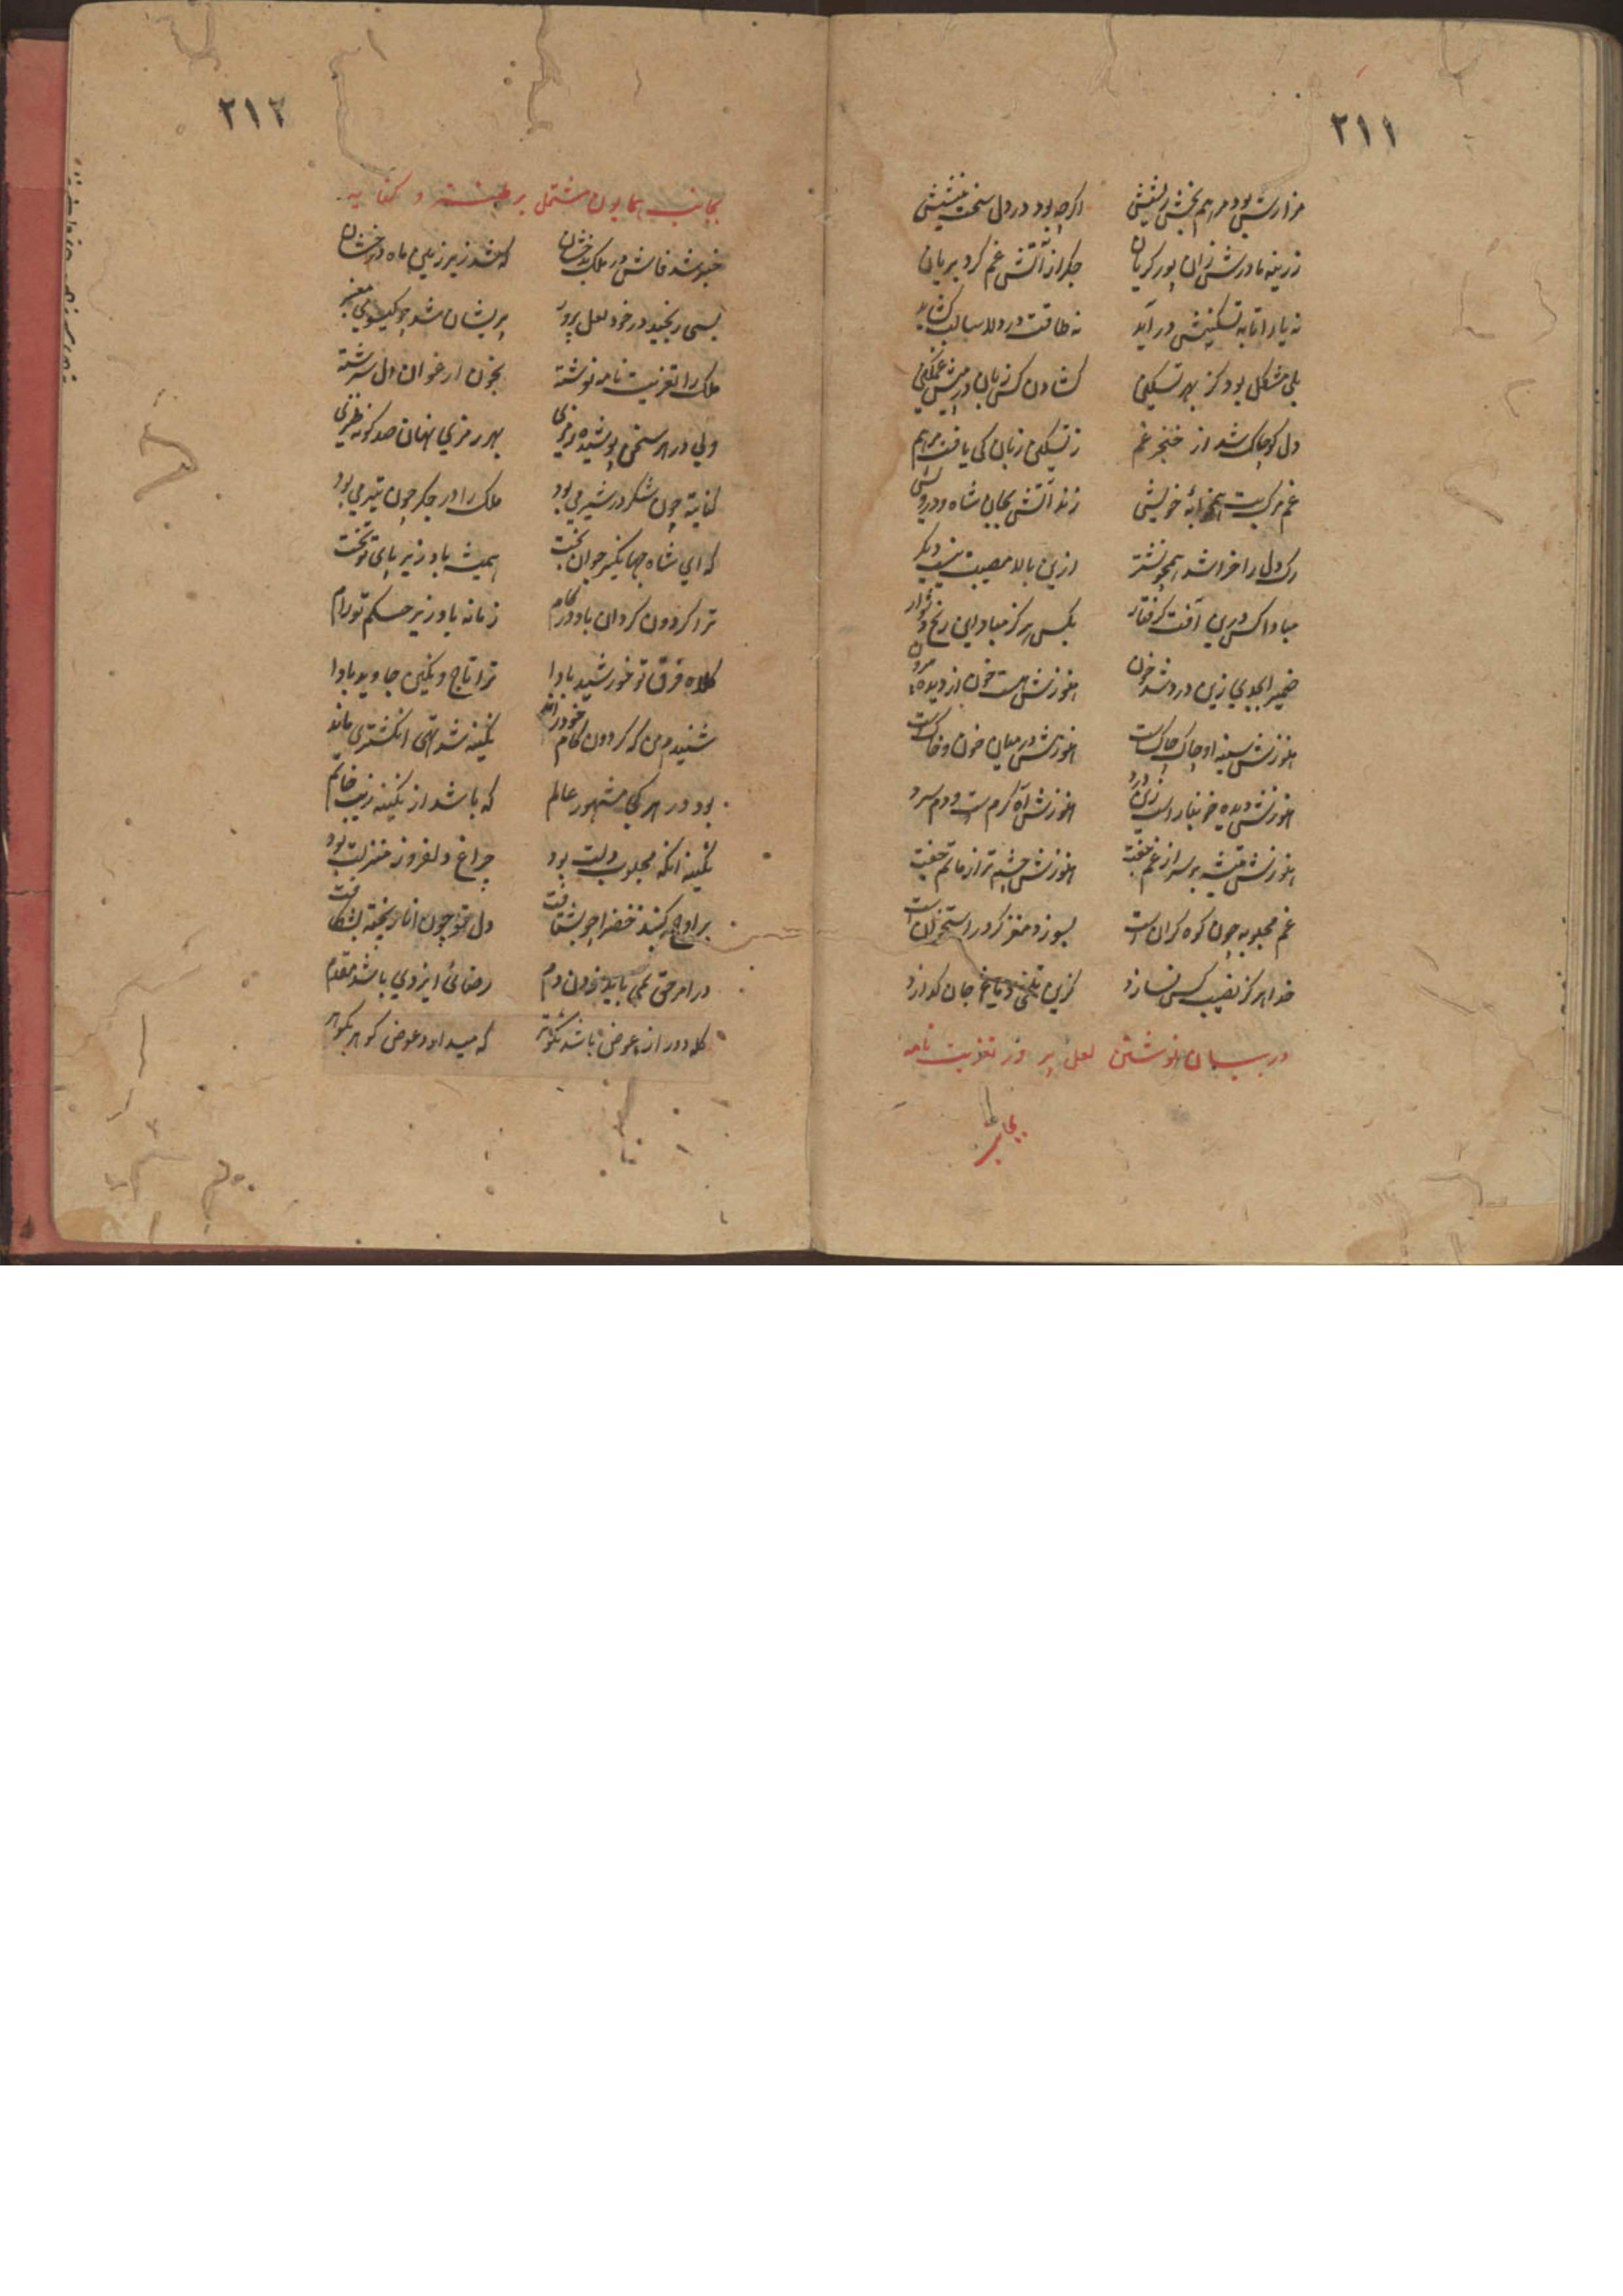 ٢١١
اکرچه بود در دل سخت
زرینه مادرش زان پور کریان جکر از آتش غم کرد بریان
نه یارا تا به تسکینش در آید نه طاقت در
بلی مشکل بود کز بهر تسکین کشادن کس زبان در پیش غمکین
دل کو چاک شد از خنجر غم ز تسکین زبان کی یافت مرهم
غم مرکیست خویشی زند آتش بجان شاه و درویش
رک دل را خراشد همچو نشتر ازین بالا مصیبت نیست دیکر
مبادا کس درین آفت کرفتار بکس هرکز مبادا این رنج و
ضمیر ابجدی زین درد شد خون هنوزش هست خون از دیده
هنوزش سینه او چاک چاکست هنوزش در میان خون و خاکست
هنوزش دیده خونبار است زین درد هنوزش آه کرم ست و دم سرد
هنوزش تیشه بر سر از غم هنوزش چشم تر از ماتم
غم محبوبه چون کوه کران است بسوزد مغز کر در استخوان است
خدا هرکز نصیب کس نسازد کزین تلخی جان کدازد
در بیان نوشتن لعل پرور تعزیت نامه
بجانب
٢١٢
بجانب همایون مشتمل بر و کنایه
خبر شد فاش در ملک بدخشان که شد زیر زمین ماه درخشان
بسی رنجید در خود لعل پرور پریشان شد چو کیسوی معنبر
ملک را تعزیت نامه نوشته بخون ارغوان دل سرشته
ولی در هر سخن پوشیده رمزی بهر رمزی نهان صد کونه
کنایه چون شکر در شیر می بود ملک را در جکر چون تیر می بود
که ای شاه جهانکیر جوان بخت همیشه باد زیر پای تو تخت
ترا کردون کردان باد در کام زمانه باد زیر حکم تو رام
کلاه فرق تو خورشید بادا ترا تاج و نکین جاوید بادا
شنیدم من که کردون کام خود راند نکینه شد تهی انکشتری ماند
بود در هر کجا مشهور عالم که باشد از نکینه زیب خاتم
نکینه آنکه محبوب دلت بود چراغ دلفروز منزلت بود
دل تو چون انار پخته بشکافت
در امر حق نمی باید زدن دم رضائ ایزدی باشد مقدم
کله دور از عوض باشد نکوتر که میداد عوض کوهر بکوهر